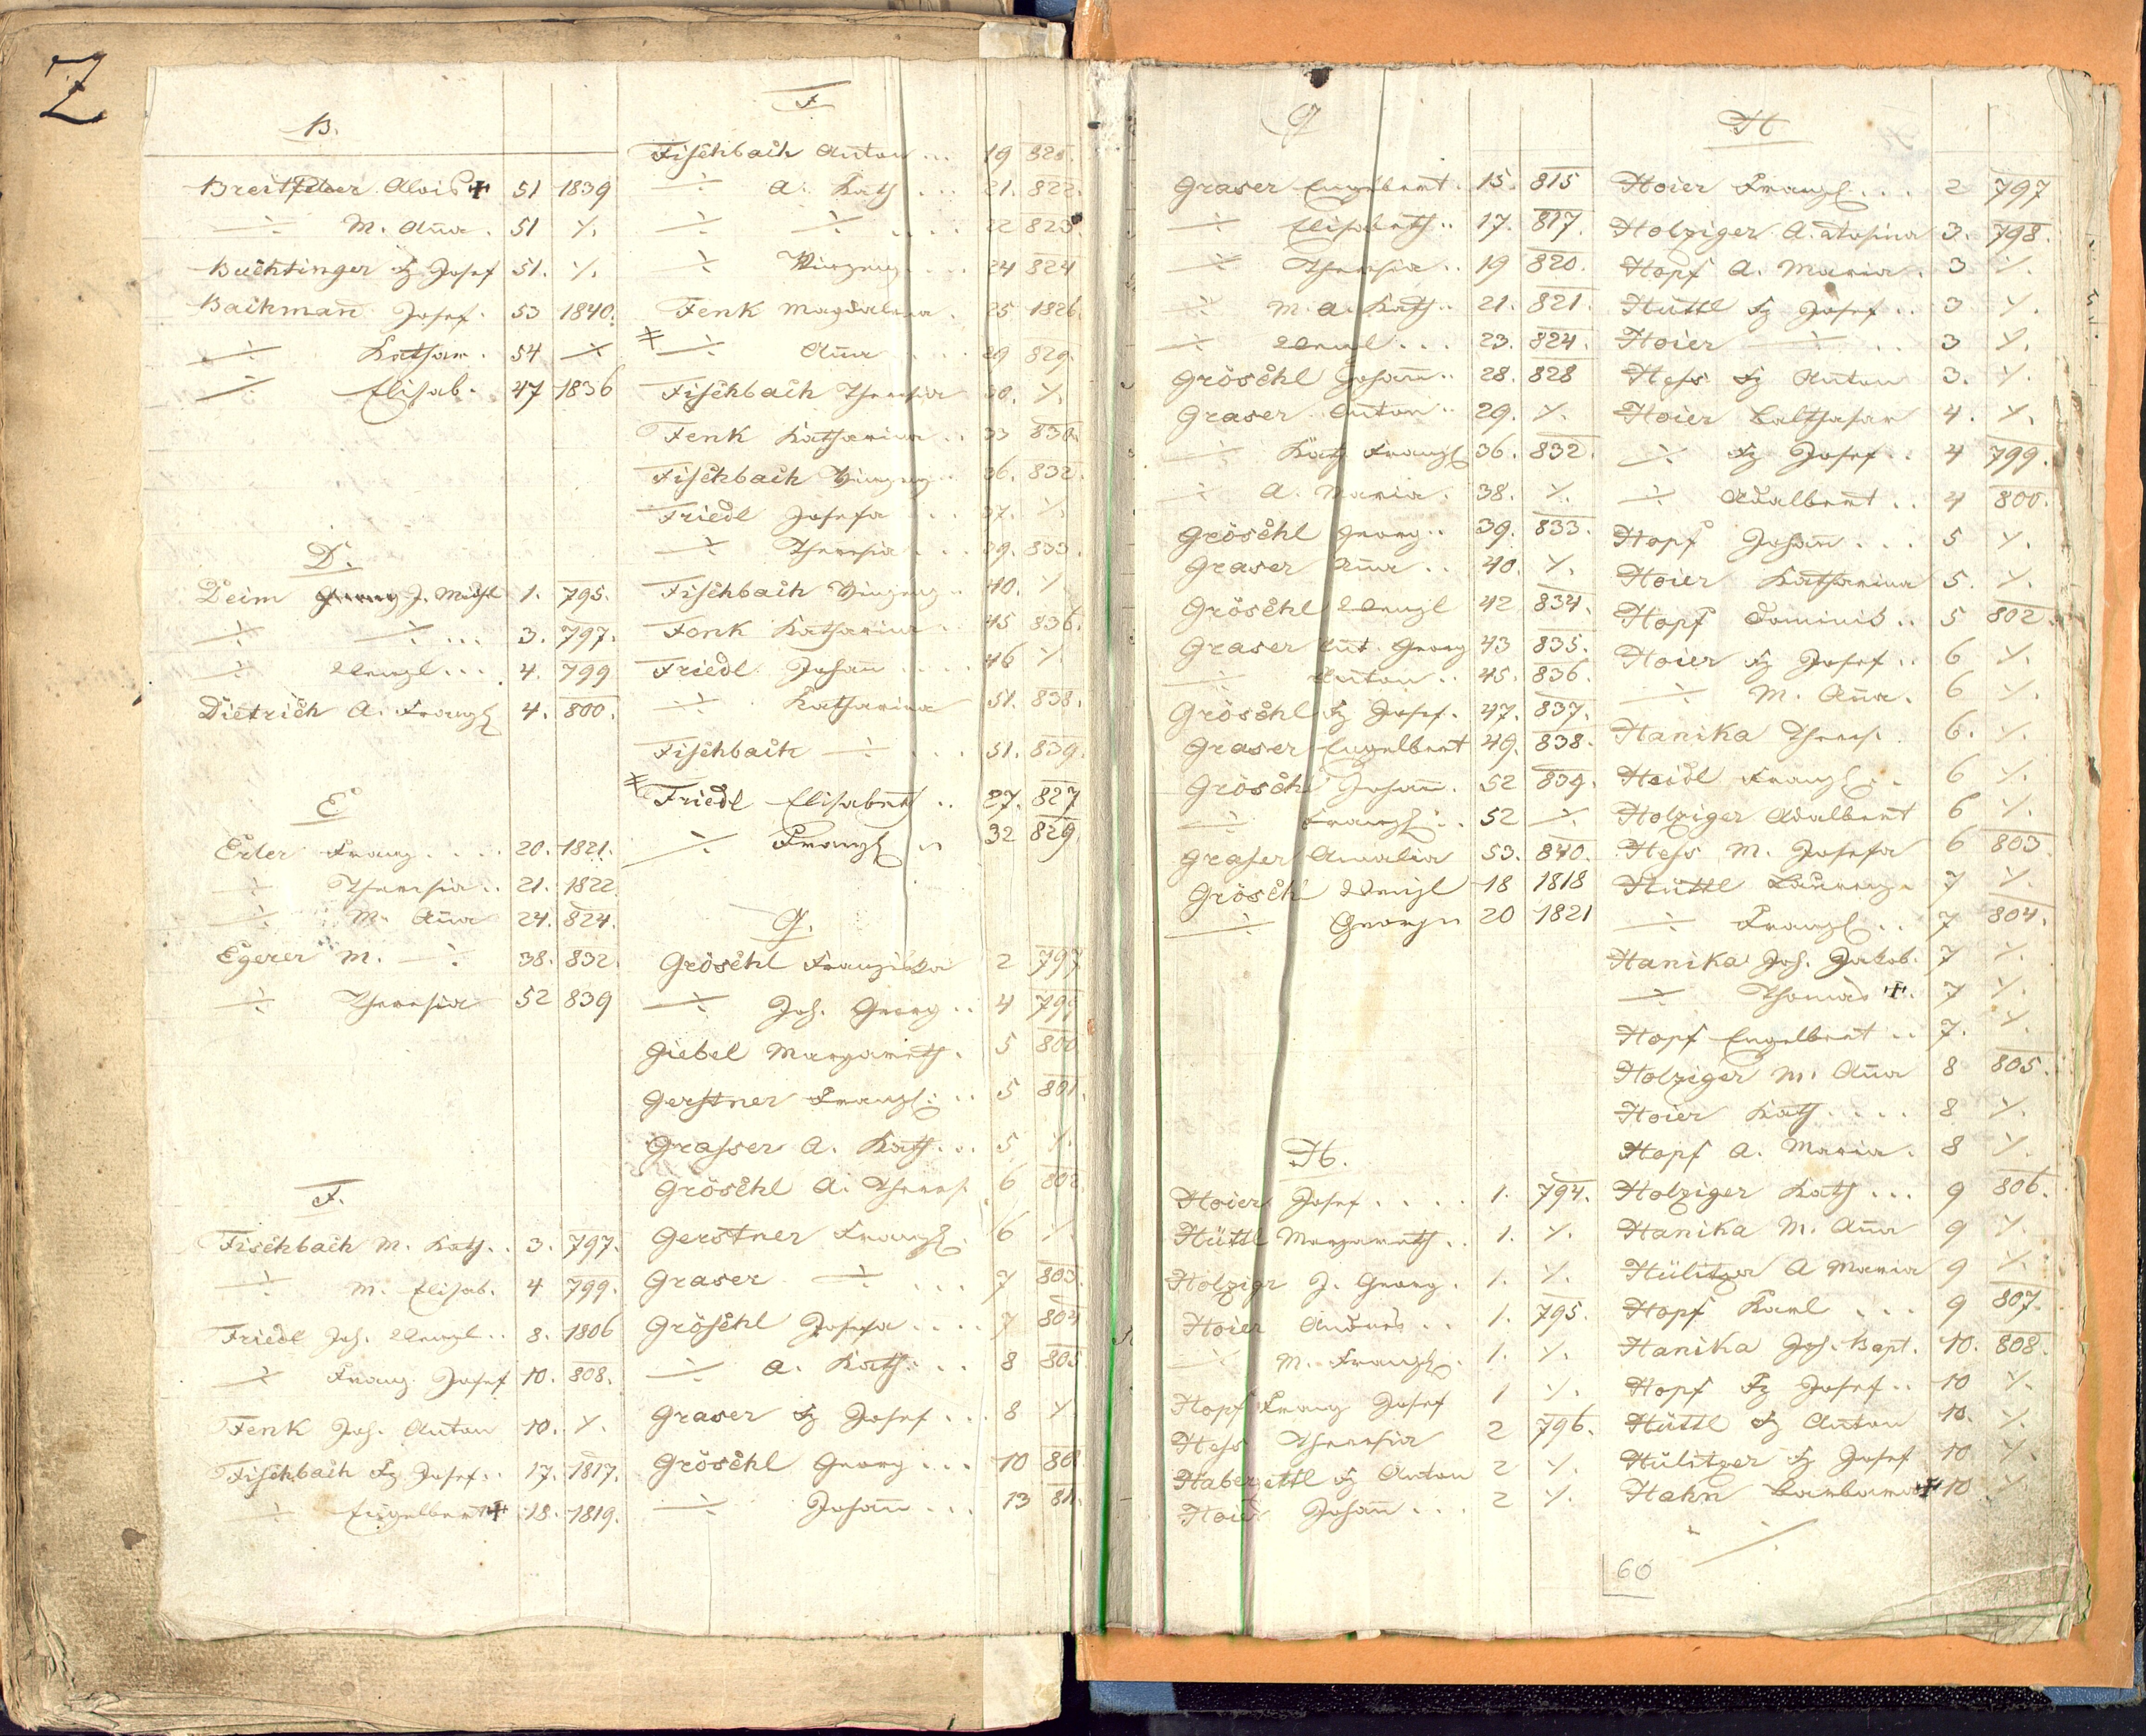 Z
B.
Breitfelder Alois + 51 1839
÷ M. Anna . 51 ٪.
Buchtinger Fz Josef 51. ٪.
Bachmann Josef. 53 1840.
÷ Kathar. 54 ٪
÷ Elisab. 47 1836
D.
Deim J. Michl 1. 795.
÷ ÷ ... 3. 797.
÷ Wenzl ... 4. 799
Dietrich A. Franzk 4. 800.
E
Erler Franz .... 20. 1821.
÷ Theresia .. 21. 1822.
÷ M. Anna 24. 824.
Egerer M. ÷ 38. 832.
÷ Theresia 52 839
F.
Fischbach M. Kath. . 3. 797.
÷ M. Elisab. 4 799.
Friedl Joh. Wenzl .. 8. 1806
÷ Franz Josef 10. 808.
Fenk Joh. Anton 10. ٪.
Fischbach Fz Josef .. 17. 1817.
÷ Engelbert + 18. 1819.
F
Fischbach Anton ... 19 820.
÷ A. Kath ... 21. 822.
÷ ÷ .... 22 823
÷ Vinzenz ... 24 824
Fenk Magdalena . 25 1826.
÷ Anna ... 29 829.
Fischbach Theresia 30. ٪.
Fenk Katharina .. 33 830.
Fischbach Vinzenz .. 36. 832.
Friedl Josefa ... 37. ٪.
÷ Theresia ... 39. 833.
Fischbach Vinzenz .. 40. ٪
Fenk Katharina .. 45 836.
Friedl Johann .... 46 ٪.
÷ Katharina 51. 838.
Fischbach ÷ ... 51. 839.
Friedl Elisabeth .. 27. 827
÷ Franzk .. 32 829.
G.
Gröschl Franziska 2 797
÷ Joh. Georg .. 4 799
Giebel Margareth . 5 800
Gerstner Franzk .. 5 801.
Grasser A. Kath. .. 5 ٪.
Gröschl A. Theres. 6 802.
Gerstner Franzk. 6 ٪.
Graser ÷ ... 7 803.
Gröschl Josefa .... 7 804
÷ A. Kath. ... 8 805
Graser Fz Josef ... 8 ٪
Gröschl Georg ... 10 80
÷ Johann ... 13 81.
G
Graser Engelbert . 15. 815
÷ Elisabeth .. 17. 817.
÷ Theresia .. 19 820.
÷ M. A. Kath .. 21. 821.
÷ Wenzl ... 23. 824.
Gröschl Johann .. 28. 828
Graser Anton .. 29. ٪.
÷ Kath. Franzk 36. 832.
÷ A. Maria . 38. ٪.
Gröschl Georg .. 39. 833.
Graser Anna .. 40. ٪.
Gröschl Wenzl 42 834.
Graser Ant. Georg 43 835.
÷ Anton .. 45. 836.
Gröschl Fz Josef. 47. 837.
Graser Engelbert 49. 838.
Gröschl Johann . 52 839.
÷ Franzk .. 52 ٪.
Graser Amalia 53. 840.
Gröschl Wenzl 18 1818
÷ Georg .. 20 1821
H.
Hoier Josef .... 1. 794.
Hüttl Margareth . . 1. ٪.
Holzigr J. Georg . 1. ٪.
Hoier Andres .. 1. 795.
÷ M. Franzk . 1. ٪.
Hopf Franz Josef 1 ٪.
Hess Theresia 2 796.
Haberzettl Fz Anton 2 ٪.
Hoier Johann ... 2 ٪.
H
Hoier Franzk ... 2 797
Holziger A. Rosina 3. 798.
Hopf A. Maria . 3 ٪.
Hüttl Fz Josef .. 3 ٪.
Hoier ÷ .. 3 ٪.
Hess Fz Anton 3. ٪.
Hoier Balthasar 4. ٪.
÷ Fz Josef .. 4 799.
÷ Adalbert .. 4 800.
Hopf Johann ... 5 ٪.
Hoier Katharina 5. ٪.
Hopf Dominik .. 5 802.
Hoier Fz Josef .. 6 ٪.
÷ M. Anna . 6 ٪.
Hanika Theres. 6. ٪.
Heidl Franzk .. 6 ٪.
Holziger Adalbert 6 ٪.
Hess M. Josefa 6 803
Hüttl Laurenz . 7 ٪.
÷ Franzk .. 7 804.
Hanika Joh. Jakob. 7 ٪.
÷ Thomas +. 7 ٪.
Hopf Engelbert .. 7. ٪.
Holziger M. Anna 8 805.
Hoier Kath .... 8 ٪.
Hopf A. Maria . 8 ٪.
Holziger Kath ... 9 806.
Hanika M. Anna 9 ٪.
Hülitzer A Maria 9 ٪.
Hopf Karl ... 9 807.
Hanika Joh. Bapt. 10. 808.
Hopf Fz Josef .. 10 ٪.
Hüttl Fz Anton 10. ٪.
Hülitzer Fz Josef 10 ٪.
Hahn Barbara + 10 ٪.
٪
60